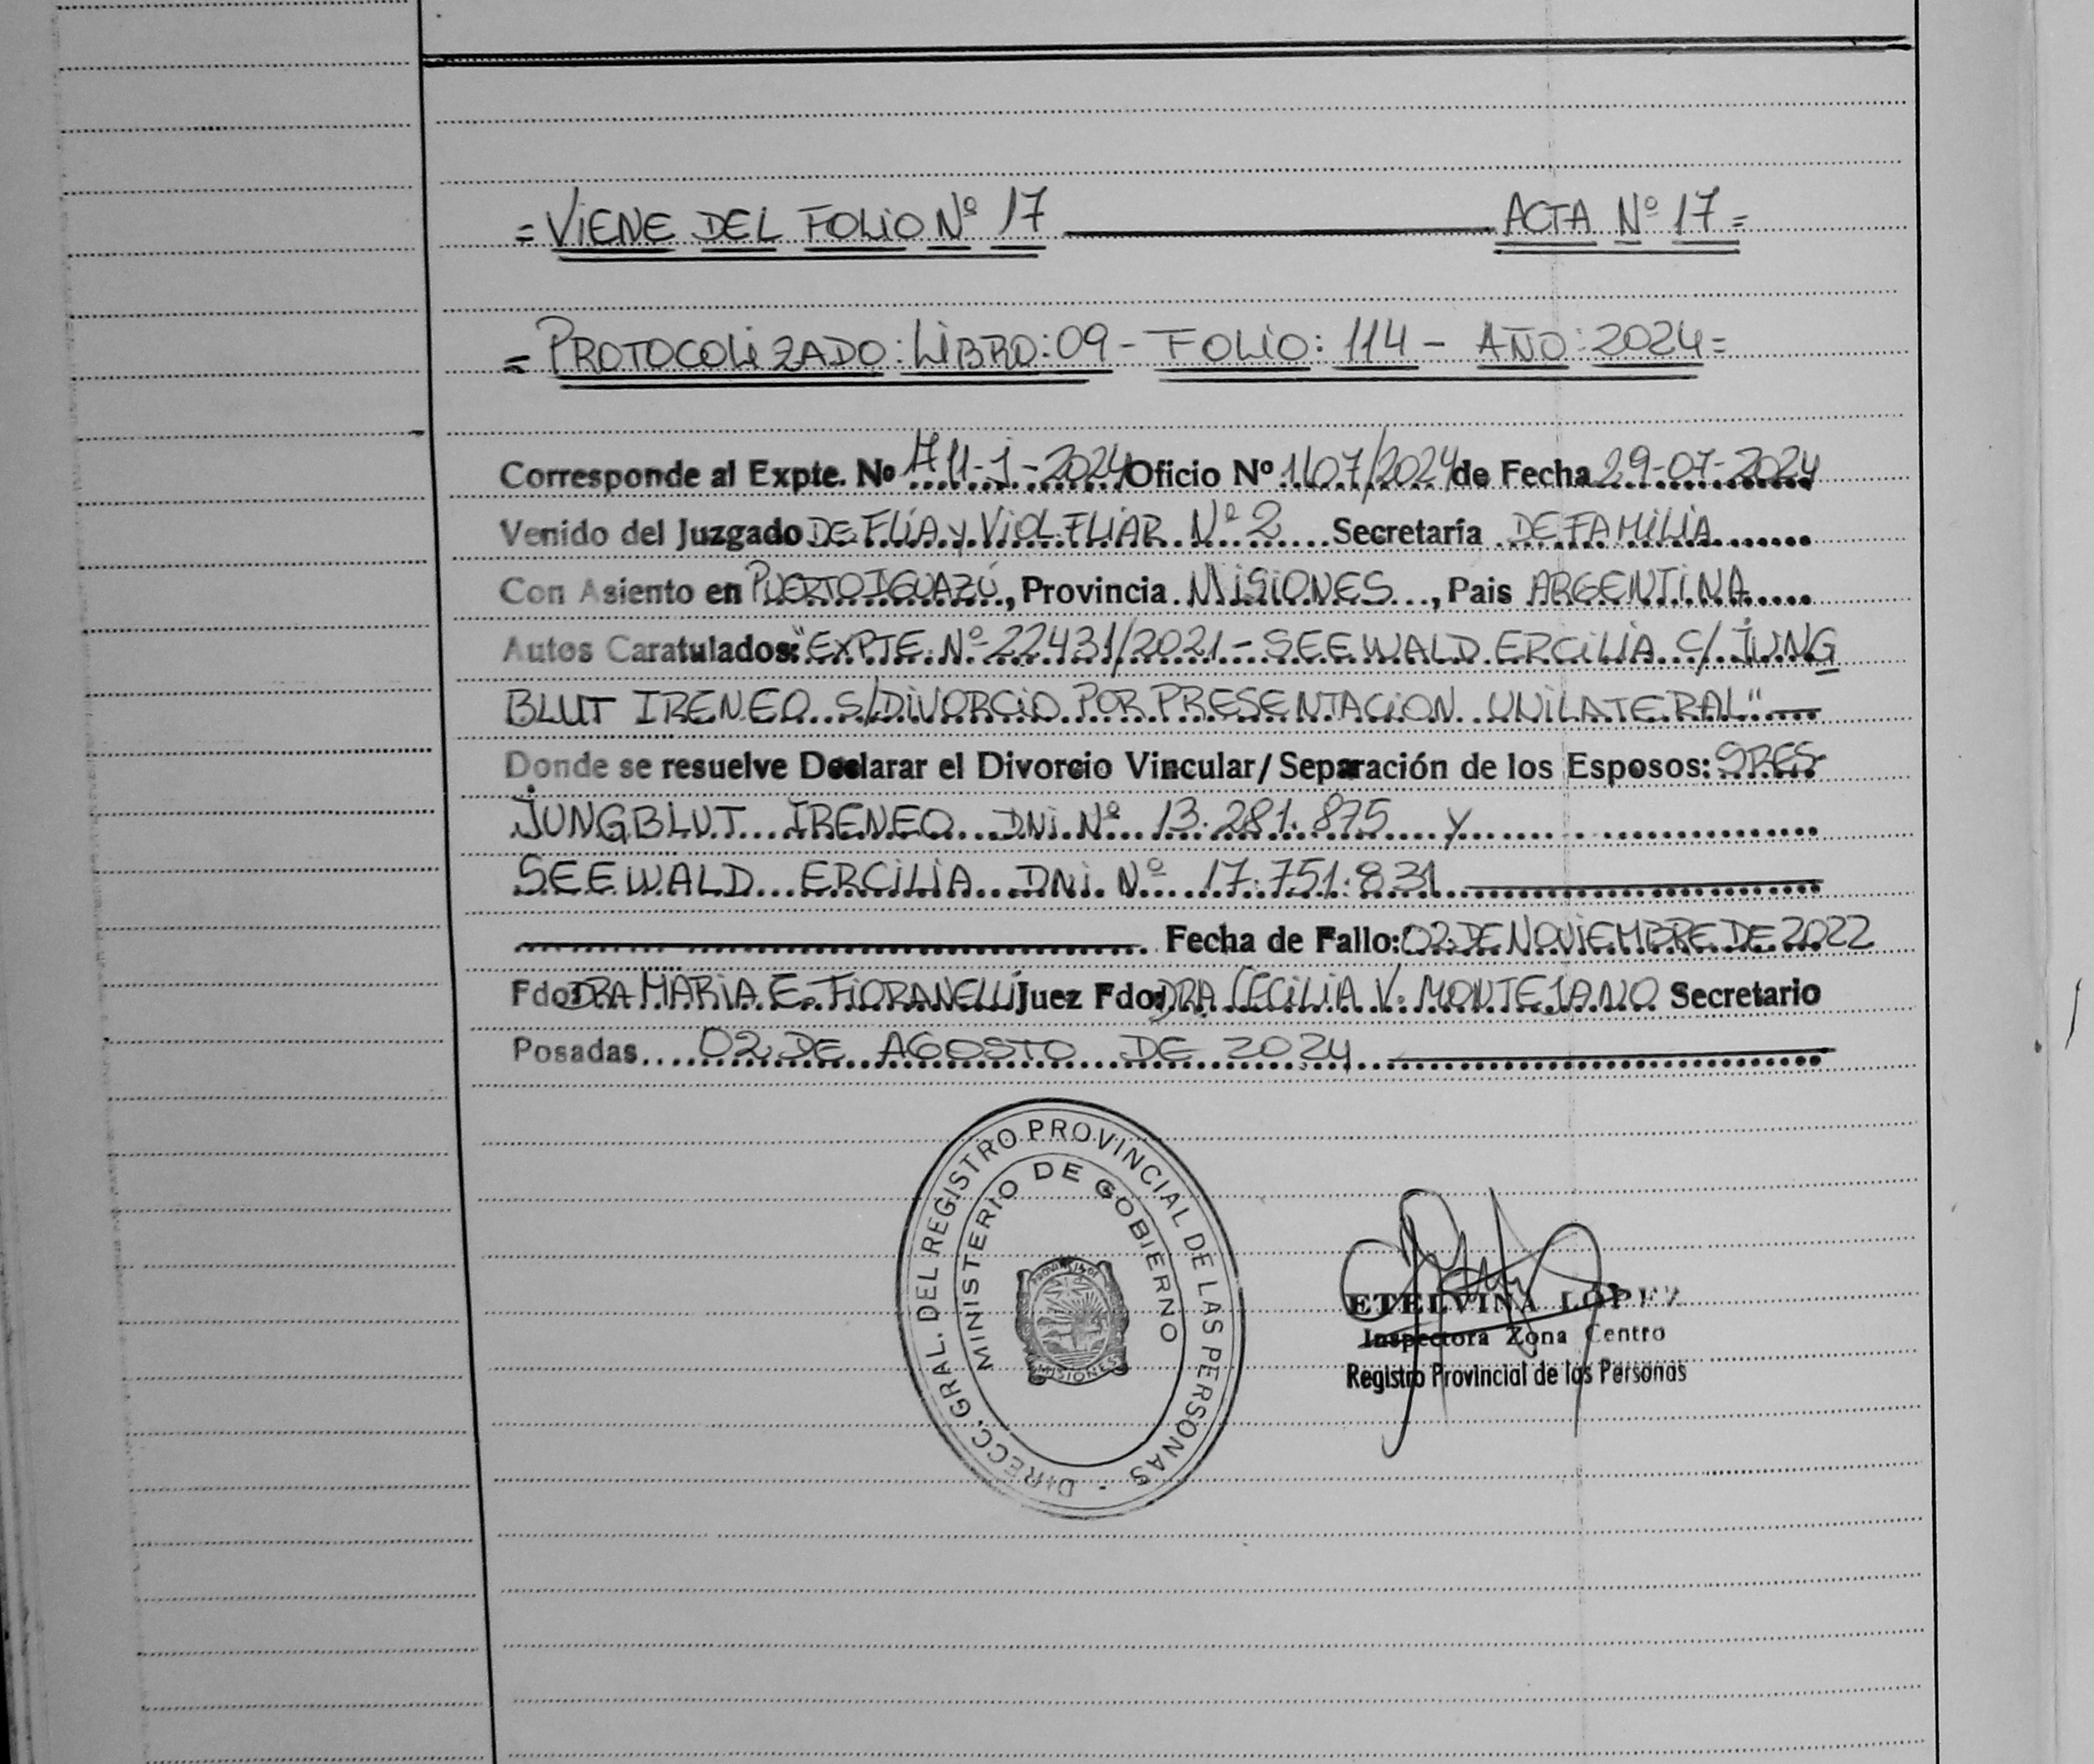 = VIENE DEL FOLIO Nº 17 ACTA Nº 17 =
= PROTOCOLIZADO: LIBRO: 09 - FOLIO: 114 - AÑO: 2024 =
Corresponde al Expte. Nº 11-J-2024 Oficio Nº 1107/2024 de Fecha 29-07-2024
Venido del Juzgado DE FLIA y VIOL. FLIAR. Nº 2 Secretaría DE FAMILIA
Con Asiento en PUERTO IGUAZÚ, Provincia MISIONES, Pais ARGENTINA
Autos Caratulados: "EXPTE. Nº 22431/2021 - SEEWALD ERCILIA C/ JUNG
BLUT IRENEO S/DIVORCIO POR PRESENTACION UNILATERAL"
Donde se resuelve Declarar el Divorcio Vincular/Separación de los Esposos: SRES
JUNGBLUT IRENEO DNI. Nº 13.281.875 y
SEEWALD ERCILIA DNI. Nº 17.751.831
Fecha de Fallo: 02 DE NOVIEMBRE DE 2022
Fdo: DRA MARIA E. FIORANELLI Juez Fdo: DRA CECILIA V. MONTEJANO Secretario
Posadas 02 DE AGOSTO DE 2024
DIRECC. GRAL. DEL REGISTRO PROVINCIAL DE LAS PERSONAS
MINISTERIO DE GOBIERNO
PROVINCIA DE
MISIONES
ETELVINA LOPEZ
Inspectora Zona Centro
Registro Provincial de las Personas